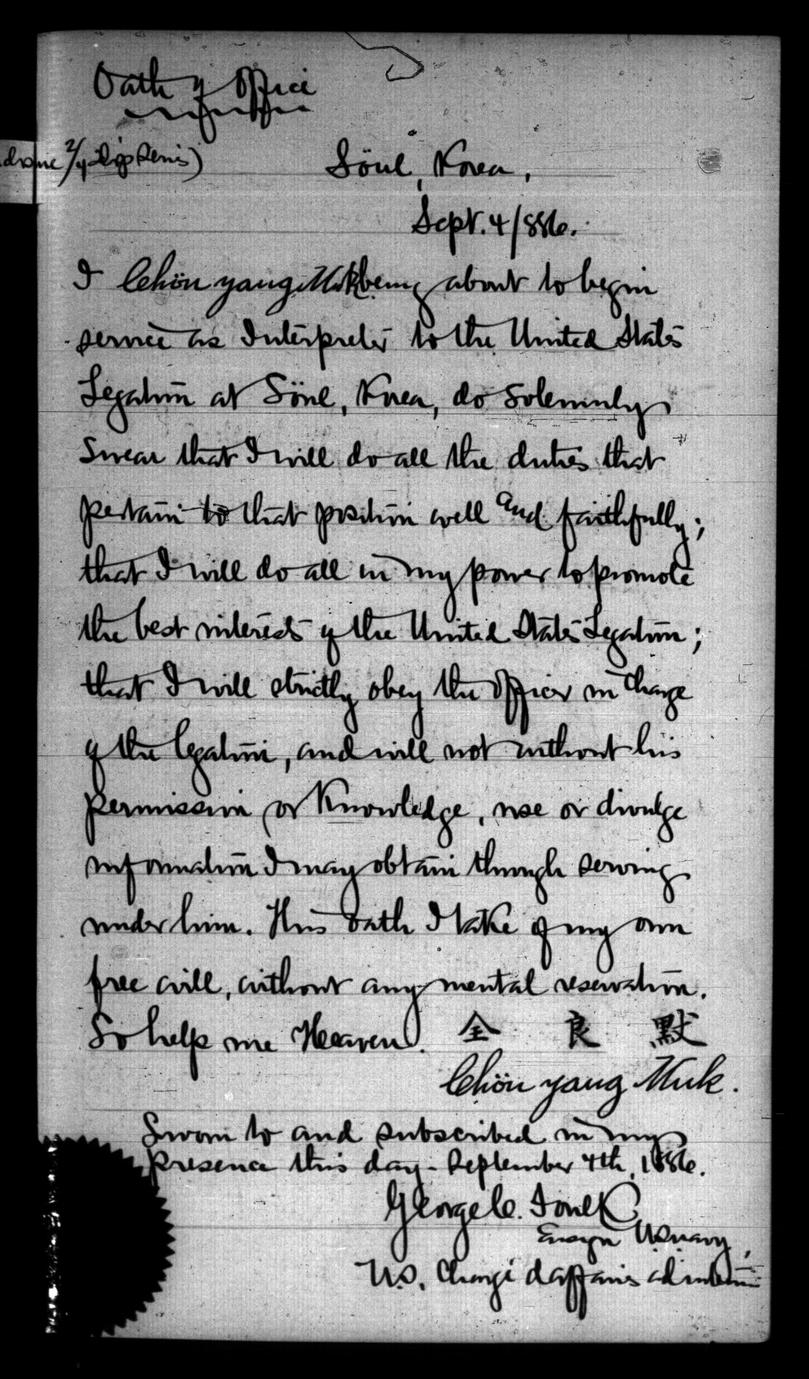 Oath of Office
Söul, Korea,
Sept. 4/886.
I Chön yang Muk being about to begin
service as Interpreter to the United States
Legation at Söul, Korea, do solemnly
swear that I will do all the duties that
pertain to that position well and faithfully;
that I will do all in my power to promote
the best interests of the United States Legation;
that I will strictly obey the officer in charge
of the legation, and will not without his
permission or knowledge, use or divulge
information I may obtain through serving
under him. This oath I take of my own
free will, without any mental reservation.
So help me Heaven. 全 良 默
Chön yang Muk.
Sworn to and subscribed in my
presence this day - September 4th, 1886.
George C. Foulk
Ensign U.S. Navy,
U.S. Chargé d'affaires ad interim